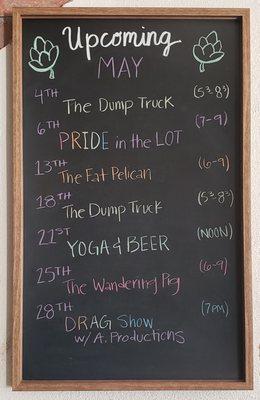 Upcoming
MAY
4TH The Dump Truck (5³-8³)
6TH PRIDE in the LOT (7-9)
13TH The Fat Pelican (6-9)
18TH The Dump Truck (5³-8³)
21ST YOGA & BEER (NOON)
25TH The Wandering Pig (6-9)
28TH DRAG Show (7PM)
w/ A. Productions